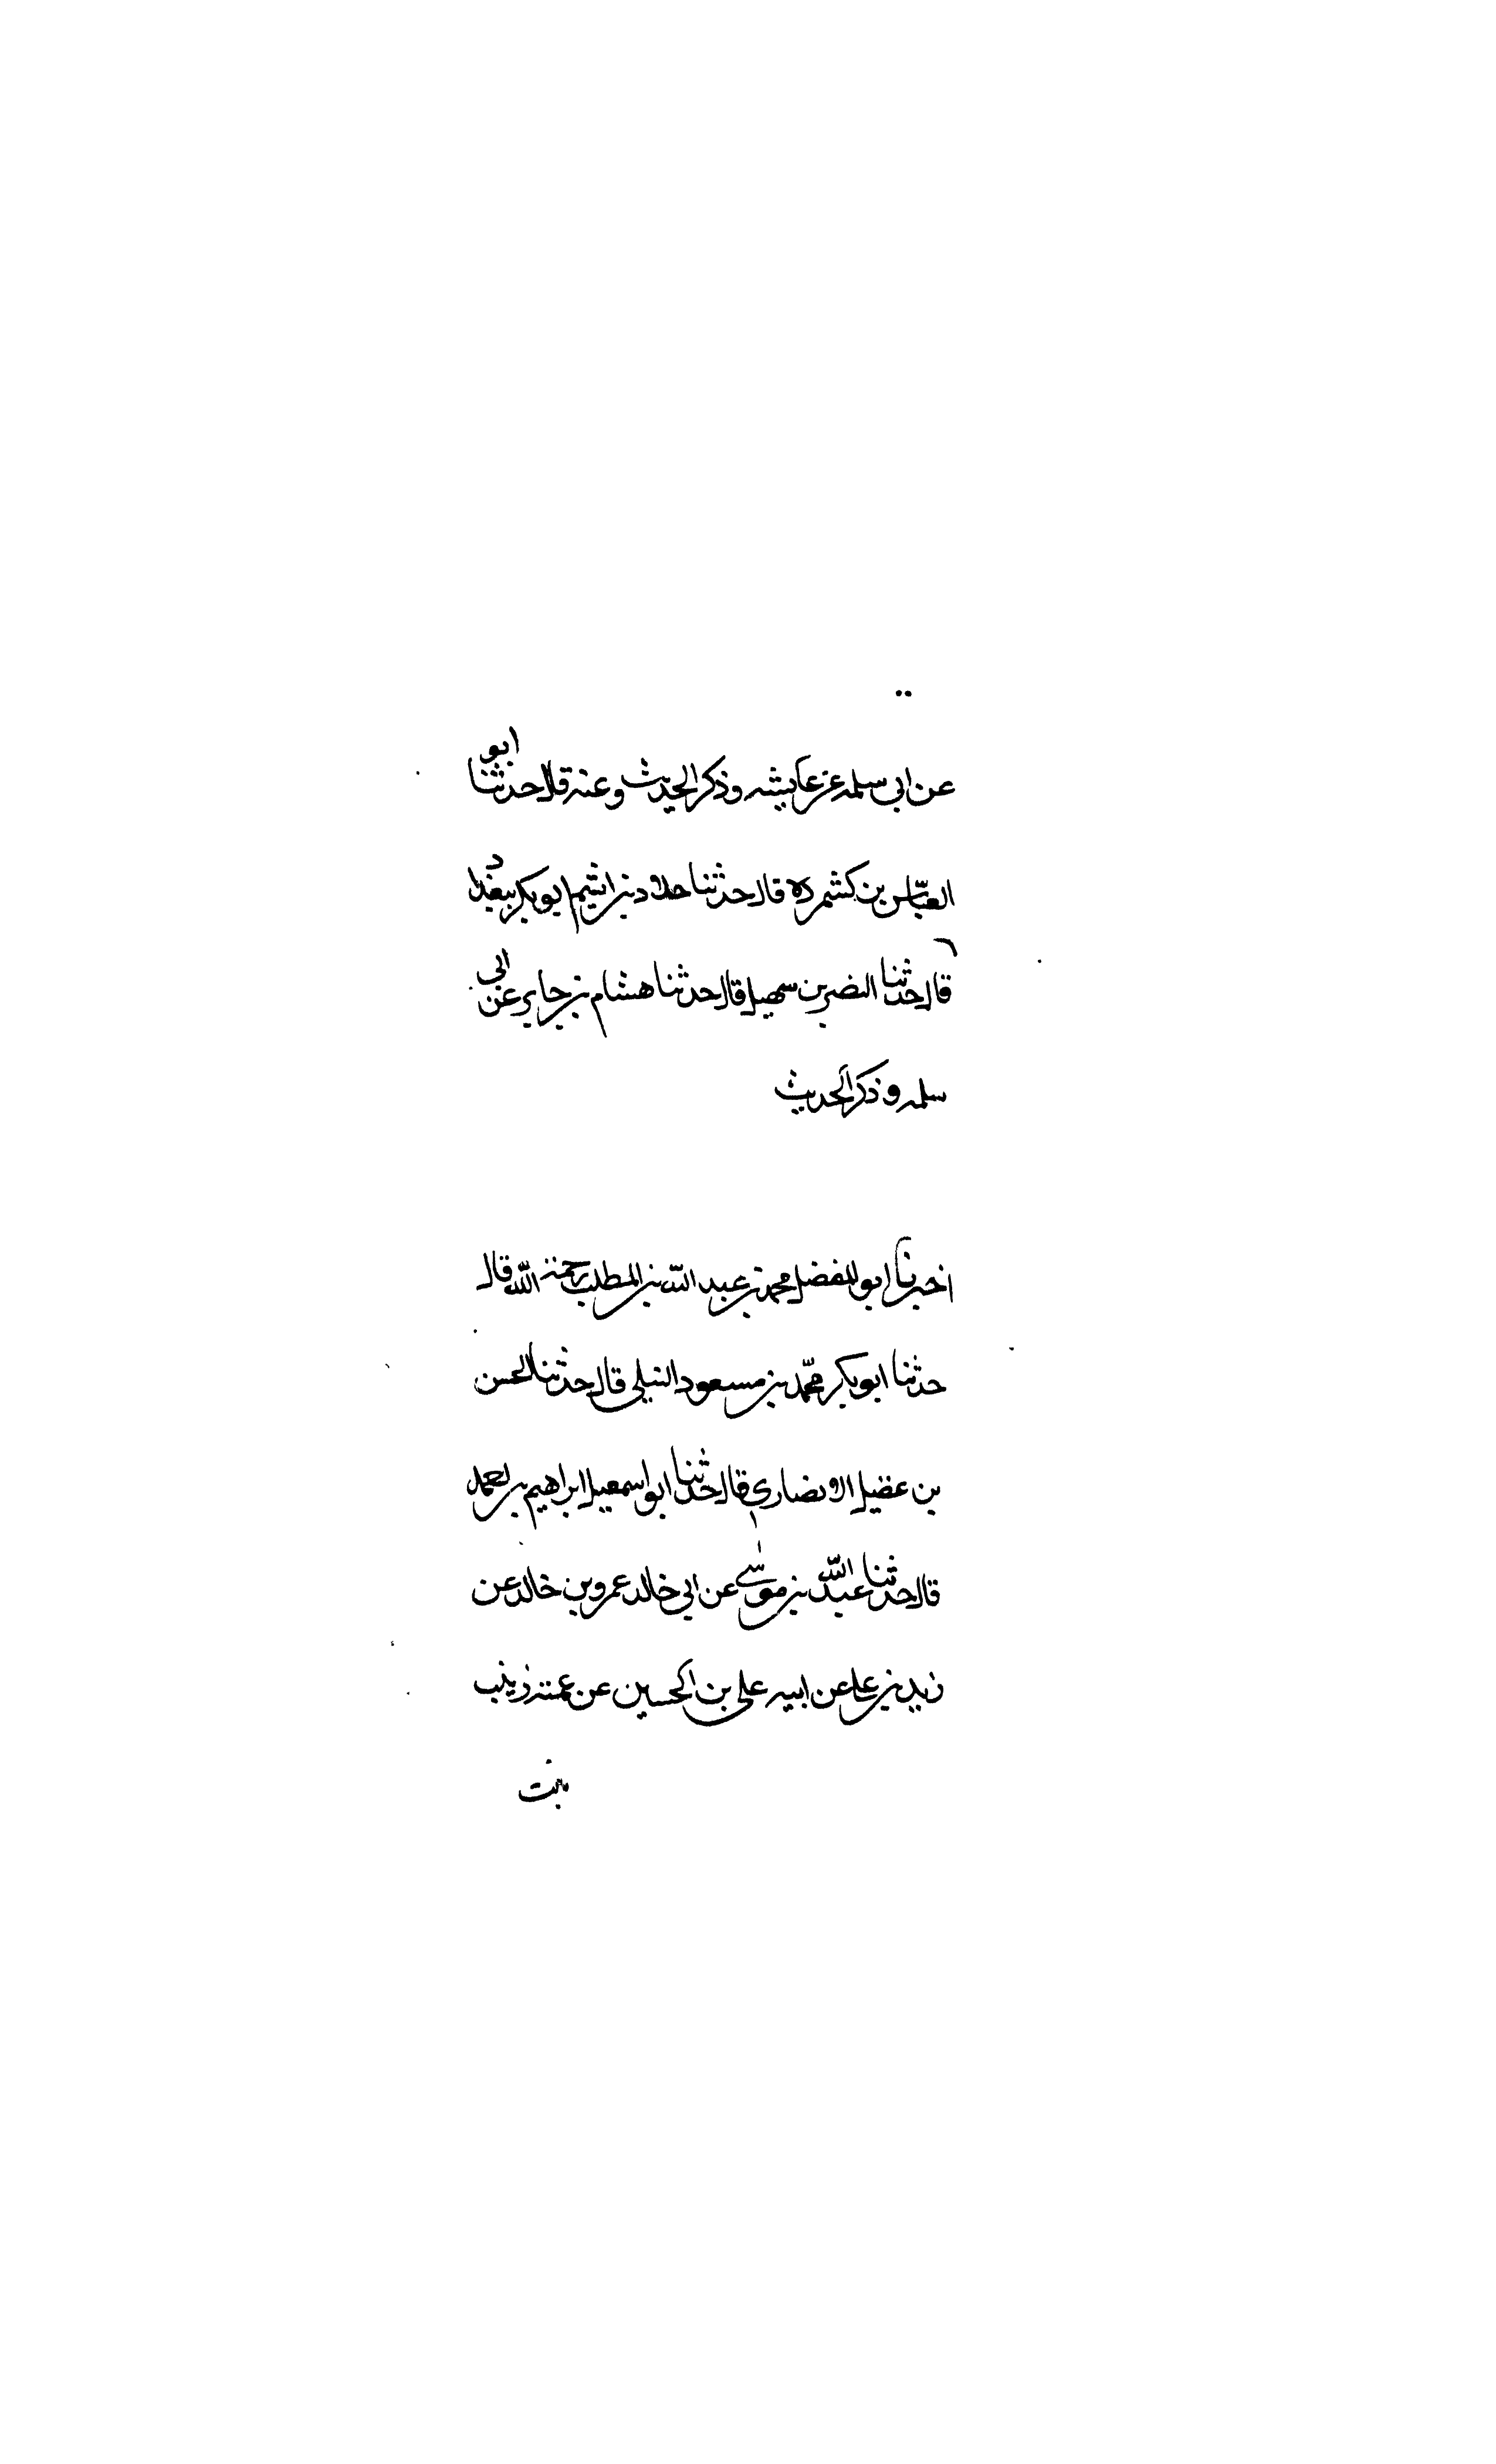 عن ابي سلمه عن عايشه وذكر الحديث وعنه قال حدثنا ابو
العباس بن كشمرده قال حدثنا خلاد بن اشيم ابو بكر ببغداد
قال حدثنا النضر بن سهيل قال حدثنا هشام بن جابر عن ابي
سلمه وذكر الحديث
اخبرنا ابو المفضل محمد بن عبد الله بن المطلب رحمة الله قال
حدثنا ابو بكر محمد بن مسعود النبلي قال حدثنا الحسن
بن عقيل الانصاري قال حدثنا ابو اسمعيل ابراهيم بن احمد
قال حدثنا عبد الله بن موسى عن ابي خالد عمرو بن خالد عن
زيد بن علي عن ابيه علي بن الحسين عن عمته زينب
بنت